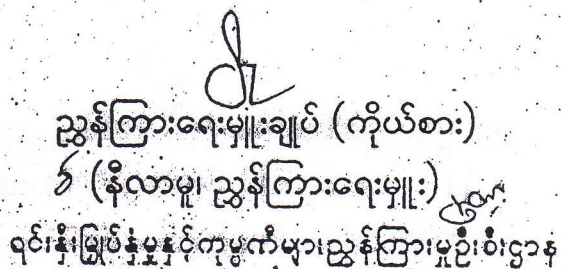 ညွှန်ကြားရေးမှူးချုပ် (ကိုယ်စား)
(နီလာမူ၊ ညွှန်ကြားရေးမှူး)
ရင်းနှီးမြှုပ်နှံမှုနှင့်ကုမ္ပဏီများညွှန်ကြားမှုဦးစီးဌာန